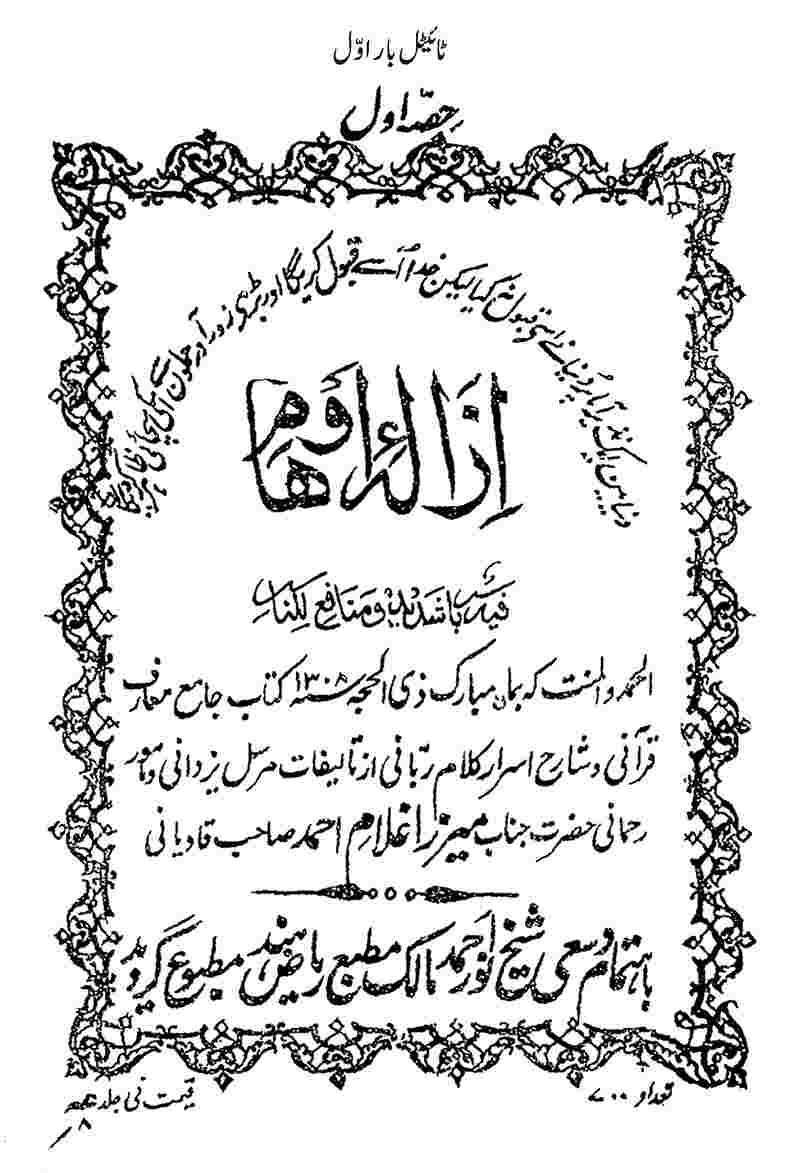 ٹائیٹل بار اوّل
حصّہ اول
دنیا میں ایک نذیر آیا پر دنیا نے اسکو قبول نہ کیا لیکن خدا اُسے قبول کریگا اور بڑی زور آور حملوں سے اسکی سچائی ظاہر کر دیگا
اِزالۂ اَوهام
فیہ بأس شدید و منافع للناس
الحمد و المنت کہ بماہ مبارک ذی الحجہ ۱۳۰۸ کتاب جامع معارف
قرآنی و شارح اسرار کلام ربّانی از تالیفات مرسل یزدانی و مامور
رحمانی حضرت جناب میرزا غلام احمد صاحب قادیانی
باہتمام و سعی شیخ نور احمد مالک مطبع ریاض ہند مطبوع گردید
تعداد ۷۰۰
قیمت فی جلد
۸